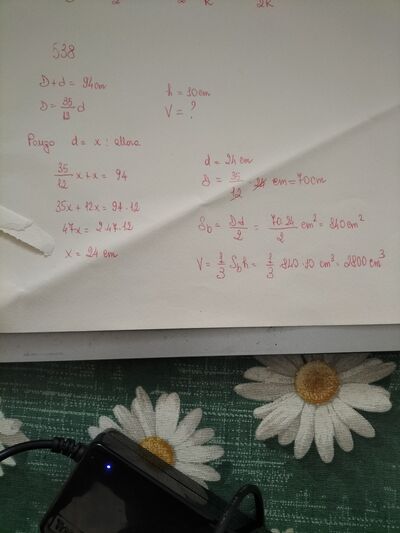 2 k 2k
538
D+d = 94cm
D = 35/12 d
h = 10cm
V = ?
Pongo d = x : allora
35/12 x + x = 94
35x + 12x = 94·12
47x = 2·47·12
x = 24 cm
d = 24 cm
D = 35/12 · 24 cm = 70cm
Sb = Dd/2 = 70·24/2 cm² = 840cm²
V = 1/3 Sb h = 1/3 840·10 cm³ = 2800 cm³